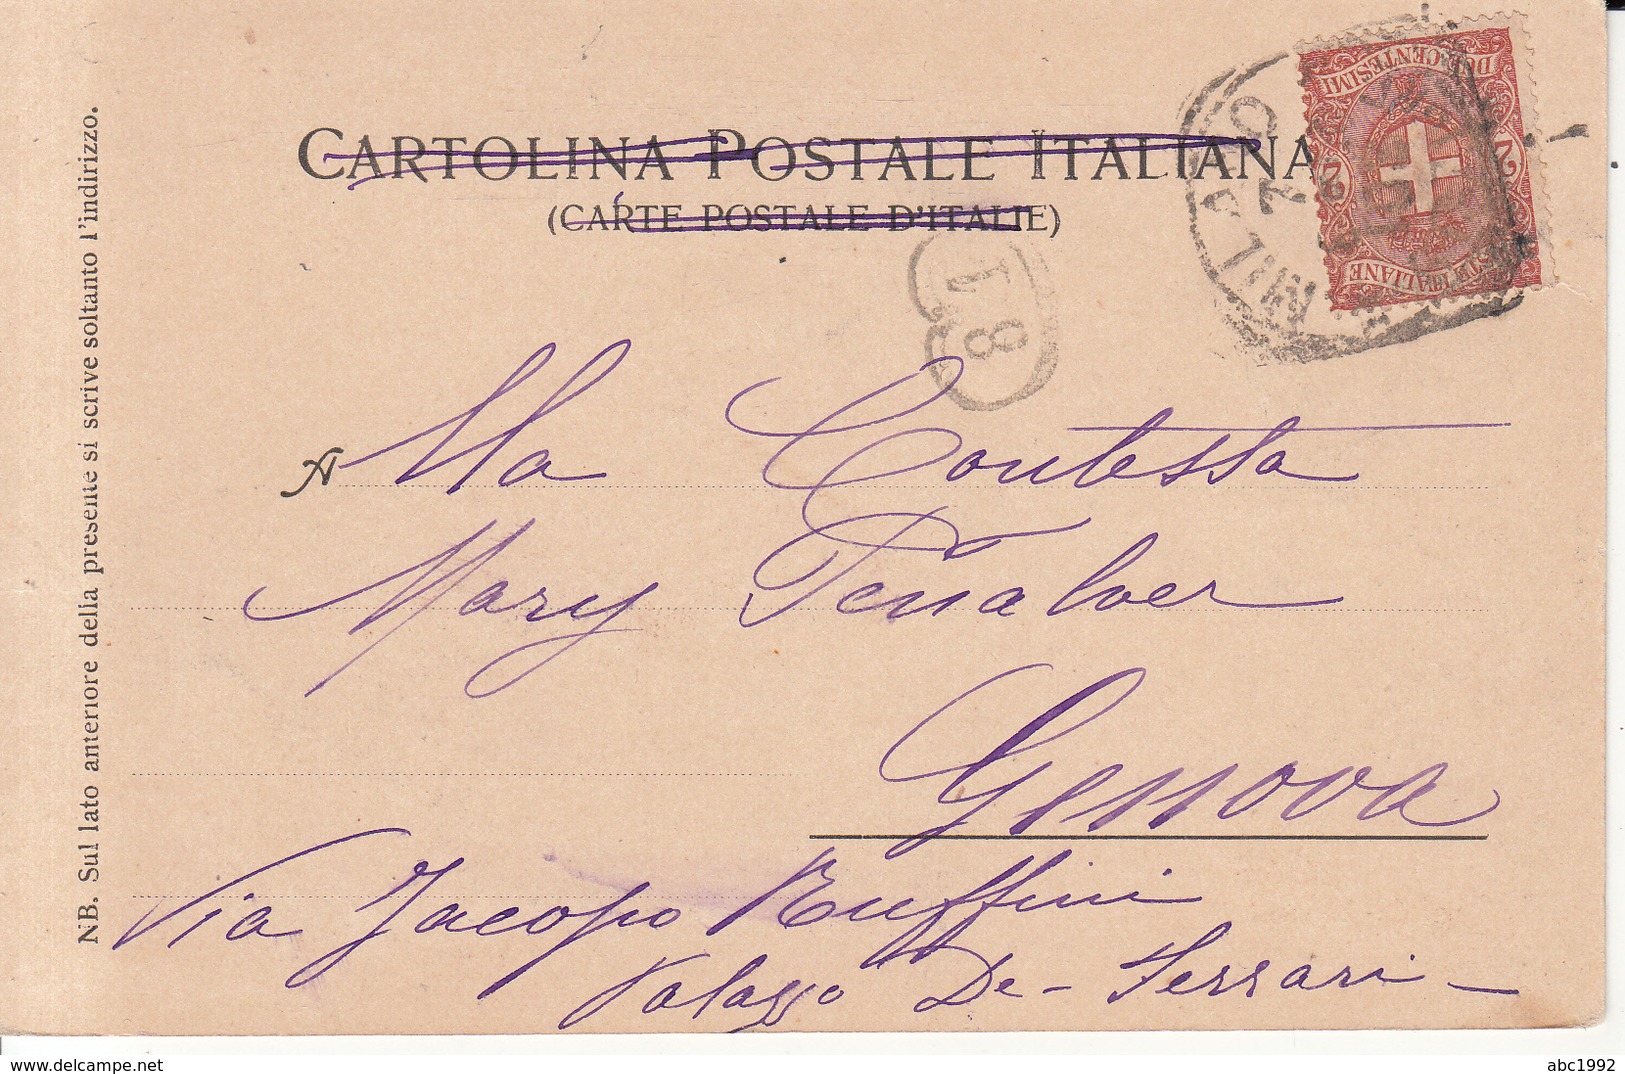 CARTOLINA POSTALE ITALIANA
(CARTE POSTALE D'ITALIE)
NB. Sul lato anteriore della presente si scrive soltanto l'indirizzo.
DUE CENTESIMI
2 2
POSTE ITALIANE
MIL
18
A lla Contessa
Mary Peñalver
Genova
Via Jacopo Ruffini
Palazzo De-Ferrari
abc1992